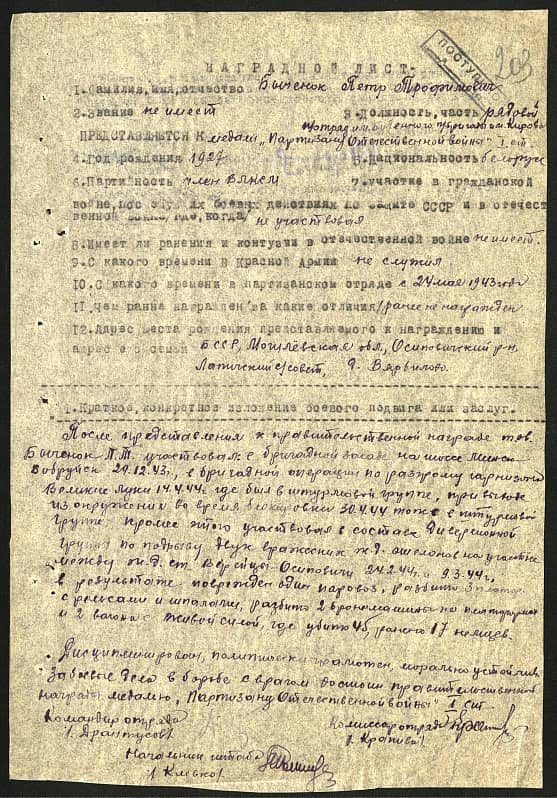 ПОСТУ
203
НАГРАДНОЙ ЛИСТ.
1. Фамилия, имя, отчество Бычёнок Пётр Трофимович
2. Звание не имеет 3. Должность, часть рядовой
ПРЕДСТАВЛЯЕТСЯ К медали „Партизану Отечественной войны" I ст
4. Год рождения 1927 5. Национальность белорус
6. Партийность член ВЛКСМ 7. участие в гражданской
войне, последующих боевых действиях по защите СССР и в отечест
венной войне/где, когда/ не участвовал
8. Имеет ли ранения и контузии в отечественной войне не имеет.
9. С какого времени в Красной Армии не служил
10. С какого времени в партизанском отряде с 24 мая 1943 года
11. Чем ранее награжден/за какие отличия/ ранее не награжден
12. Адрес места рождения представляемого к награждению и
адрес его семьи БССР, Могилёвская обл., Осиповичский р-н
Лапичский с/совет, д. Вярвилово.
1. Краткое, конкретное изложение боевого подвига или заслуг.
После представления к правительственной награде тов.
Бычёнок П.Т. участвовал в бригадной засаде на шоссе Минск
Бобруйск 29.12.43г, в бригадной операции по разгрому гарнизона
Великие Луки 14.4.44г где был в штурмовой группе, при выходе
из окружения во время блокировки 30.4.44 тоже в штурмовой
группе. Кроме этого участвовал в составе диверсионной
группы по подрыву двух вражеских ж.д. эшелонов на участке
между ж.д. ст. Верейцы-Осиповичи 24.2.44г. и 9.3.44г,
в результате поврежден один паровоз, разбито 3 платф.
с рельсами и шпалами, разбито 2 бронемашины на платформе
и 2 вагона с живой силой, где убито 45, ранено 17 немцев.
Дисциплинирован, политически грамотен, морально устойчив
За боевые дела в борьбе с врагом достоин правительственной
награды медалью „Партизану Отечественной войны" I ст
Командир отряда Комиссар отряда
/ Крапива /
Начальник штаба